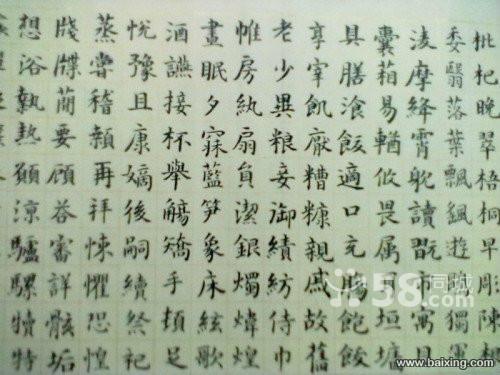 枇杷晚翠梧桐早彫陳
委翳落葉飄颻遊鵾獨運
淩摩絳霄耽讀翫市寓目
囊箱易輶攸畏属耳垣墻
具膳湌飯適口充腸飽飫
享宰飢厭糟糠親戚故舊
老少異粮妾御績紡侍巾
帷房紈扇員潔銀燭煒煌
晝眠夕寐藍笋象床絃歌
酒讌接杯舉觴矯手頓足
悅豫且康嫡後嗣續祭祀
蒸嘗稽顙再拜悚懼恐惶
牋牒簡要顧答審詳骸垢
想浴執熱願涼驢騾犢特
58同城
www.baixing.com